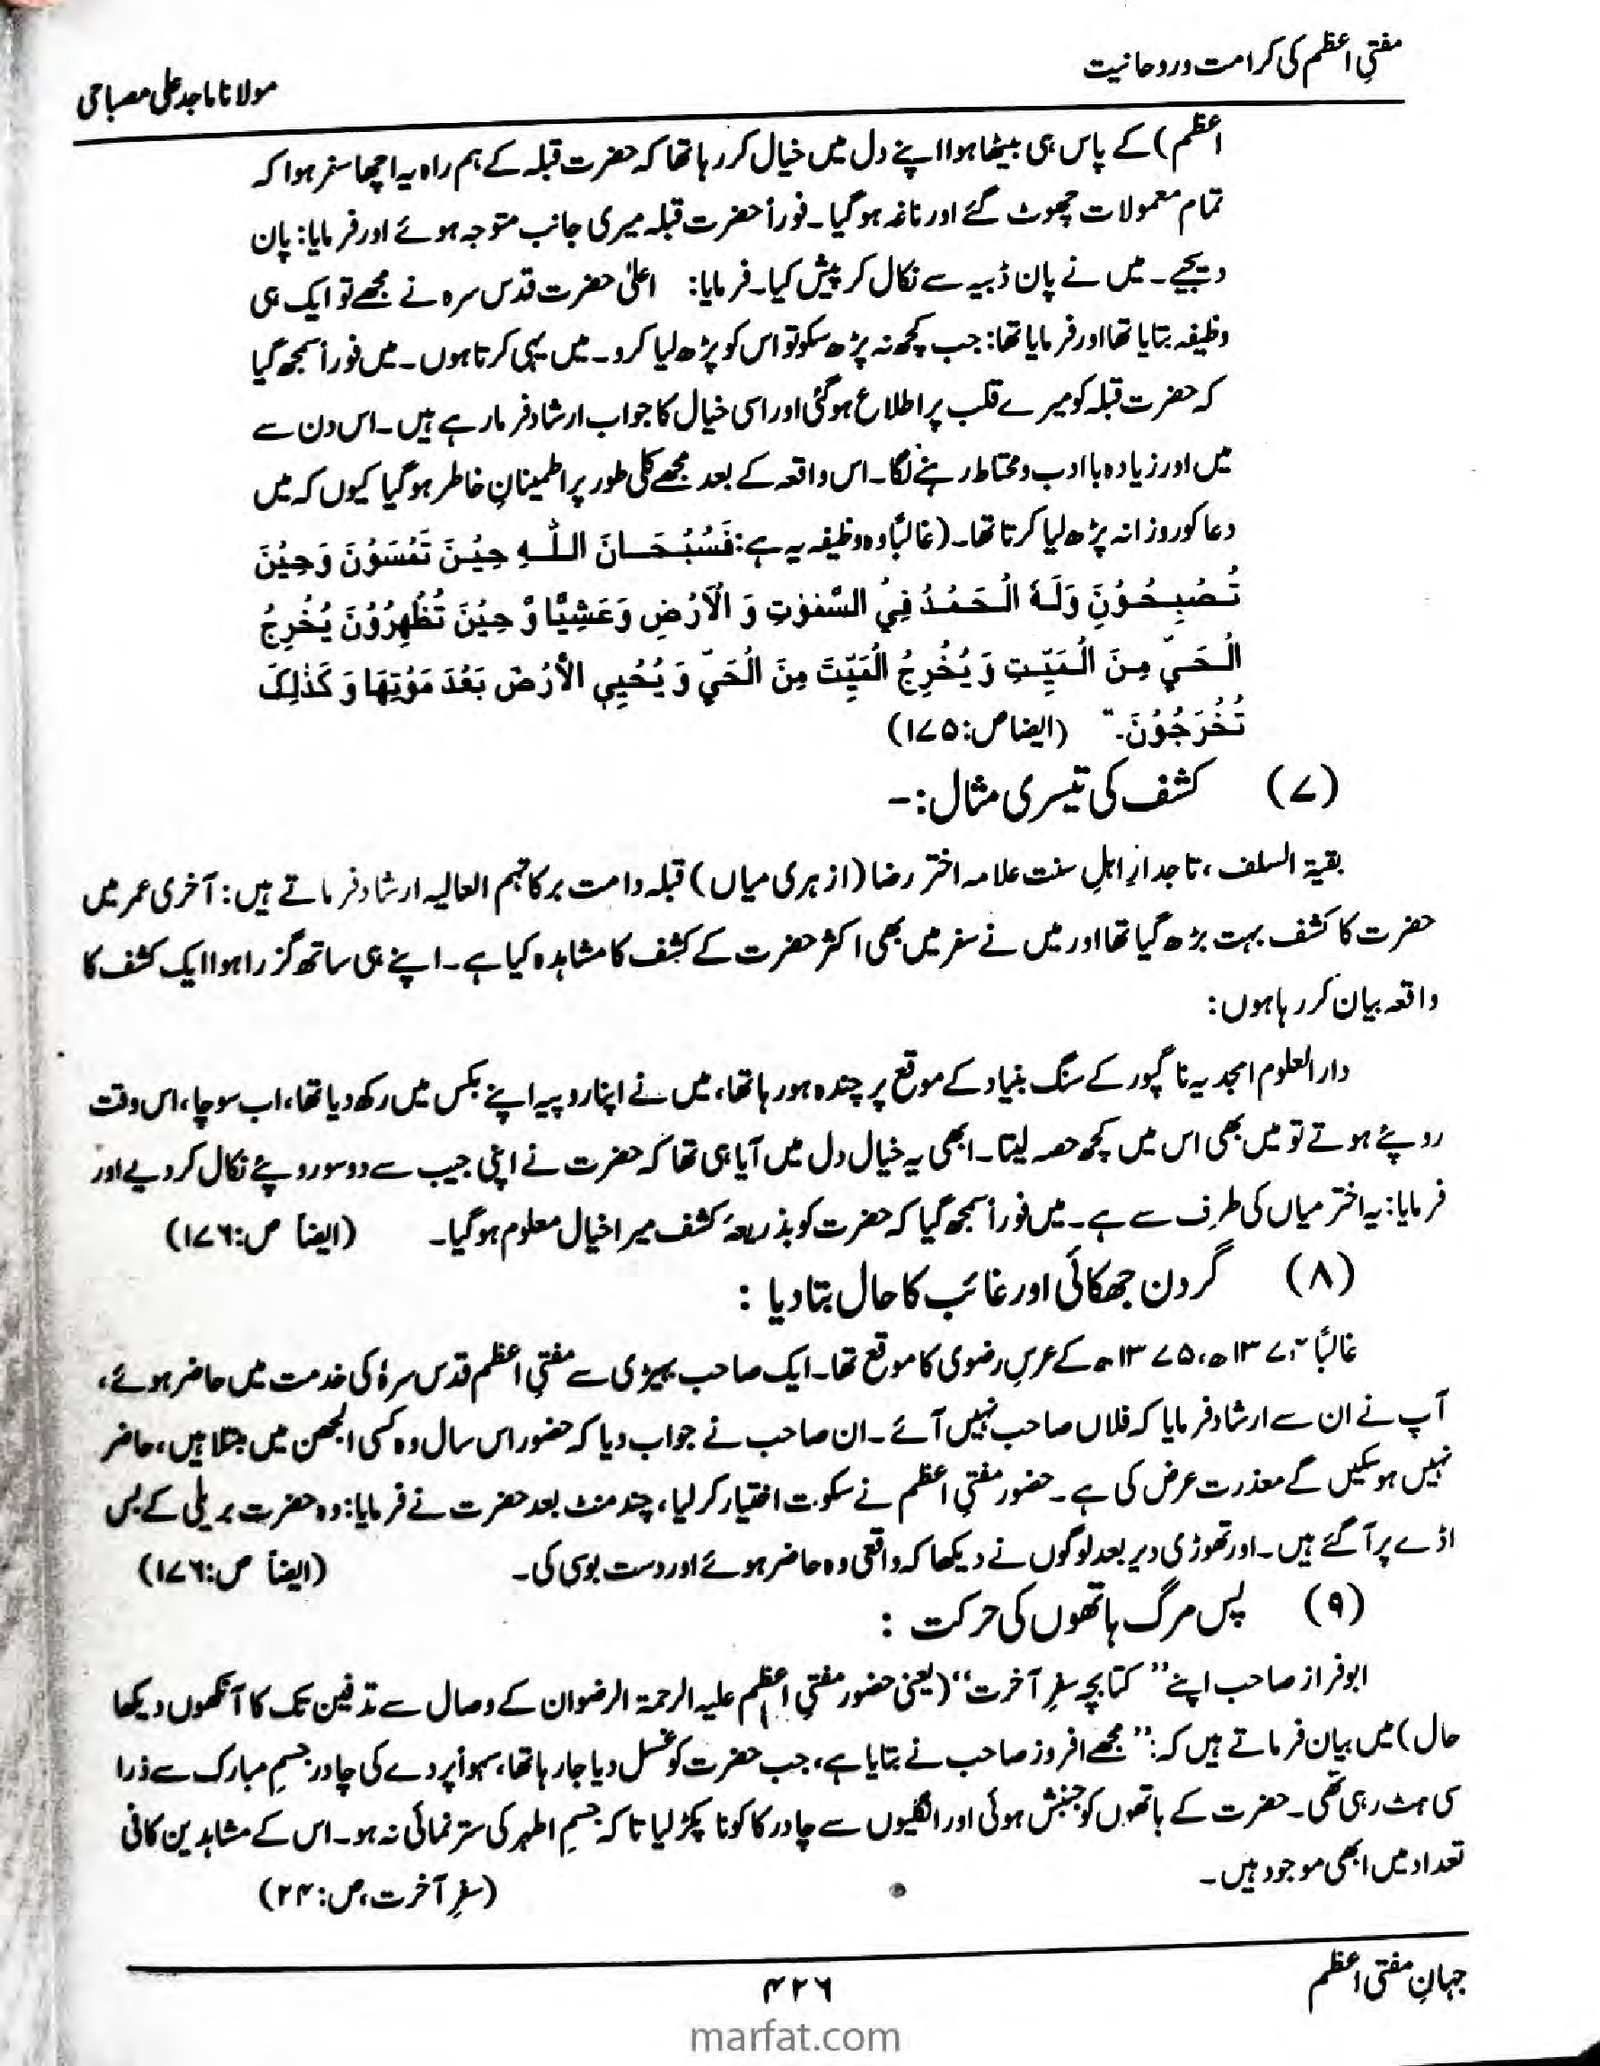 مفتیِ اعظم کی کرامت و روحانیت
مولانا ماجد علی مصباحی
اعظم) کے پاس ہی بیٹھا ہوا اپنے دل میں خیال کر رہا تھا کہ حضرت قبلہ کے ہم راہ یہ اچھا سفر ہوا کہ
تمام معمولات چھوٹ گئے اور ناغہ ہو گیا۔ فوراً حضرت قبلہ میری جانب متوجہ ہوئے اور فرمایا: پان
دیجیے۔ میں نے پان ڈبیہ سے نکال کر پیش کیا۔ فرمایا: اعلیٰ حضرت قدس سرہ نے مجھے تو ایک ہی
وظیفہ بتایا تھا اور فرمایا تھا: جب کچھ نہ پڑھ سکو تو اس کو پڑھ لیا کرو۔ میں یہی کرتا ہوں۔ میں فوراً سمجھ گیا
کہ حضرت قبلہ کو میرے قلب پر اطلاع ہو گئی اور اسی خیال کا جواب ارشاد فرما رہے ہیں۔ اس دن سے
میں اور زیادہ با ادب و محتاط رہنے لگا۔ اس واقعہ کے بعد مجھے کلی طور پر اطمینانِ خاطر ہو گیا کیوں کہ میں
دعا کو روزانہ پڑھ لیا کرتا تھا۔ (غالباً وہ وظیفہ یہ ہے: فَسُبْحَانَ اللّٰهِ حِيْنَ تُمْسَوْنَ وَحِيْنَ
تُصْبِحُوْنَ وَلَهٗ الْحَمْدُ فِيْ السَّمٰوٰتِ وَ الْاَرْضِ وَعَشِيًّا وَّ حِيْنَ تُظْهِرُوْنَ يُخْرِجُ
الْحَيَّ مِنَ الْمَيِّتِ وَ يُخْرِجُ الْمَيِّتَ مِنَ الْحَيِّ وَ يُحْيِي الْأَرْضَ بَعْدَ مَوْتِهَا وَ كَذٰلِكَ
تُخْرَجُوْنَ۔" (ایضا ص: ۱۷۵)
(۷) کشف کی تیسری مثال:-
بقیۃ السلف، تاجدارِ اہلِ سنت علامہ اختر رضا (ازہری میاں) قبلہ دامت برکاتہم العالیہ ارشاد فرماتے ہیں: آخری عمر میں
حضرت کا کشف بہت بڑھ گیا تھا اور میں نے سفر میں بھی اکثر حضرت کے کشف کا مشاہدہ کیا ہے۔ اپنے ہی ساتھ گزرا ہوا ایک کشف کا
واقعہ بیان کر رہا ہوں:
دارالعلوم امجدیہ ناگپور کے سنگ بنیاد کے موقع پر چندہ ہو رہا تھا، میں نے اپنا روپیہ اپنے بکس میں رکھ دیا تھا، اب سوچا، اس وقت
روپئے ہوتے تو میں بھی اس میں کچھ حصہ لیتا۔ ابھی یہ خیال دل میں آیا ہی تھا کہ حضرت نے اپنی جیب سے دو سو روپئے نکال کر دیے اور
فرمایا: یہ اختر میاں کی طرف سے ہے۔ میں فوراً سمجھ گیا کہ حضرت کو بذریعۂ کشف میرا خیال معلوم ہو گیا۔ (ایضاً ص: ۱۷۶)
(۸) گردن جھکائی اور غائب کا حال بتا دیا :
غالباً ۱۳۷۴ھ، ۱۳۷۵ھ کے عرس رضوی کا موقع تھا۔ ایک صاحب بہیڑی سے مفتیِ اعظم قدس سرہٗ کی خدمت میں حاضر ہوئے،
آپ نے ان سے ارشاد فرمایا کہ فلاں صاحب نہیں آئے۔ ان صاحب نے جواب دیا کہ حضور اس سال وہ کسی الجھن میں مبتلا ہیں، حاضر
نہیں ہو سکیں گے معذرت عرض کی ہے۔ حضور مفتیِ اعظم نے سکوت اختیار کر لیا، چند منٹ بعد حضرت نے فرمایا: وہ حضرت بریلی کے بس
اڈے پر آ گئے ہیں۔ اور تھوڑی دیر بعد لوگوں نے دیکھا کہ واقعی وہ حاضر ہوئے اور دست بوسی کی۔ (ایضاً ص: ۱۷۶)
(۹) پس مرگ ہاتھوں کی حرکت :
ابو فراز صاحب اپنے "کتابچہ سفرِ آخرت" (یعنی حضور مفتیِ اعظم علیہ الرحمۃ الرضوان کے وصال سے تدفین تک کا آنکھوں دیکھا
حال) میں بیان فرماتے ہیں کہ: "مجھے افروز صاحب نے بتایا ہے، جب حضرت کو غسل دیا جا رہا تھا، سہواً پردے کی چادر جسمِ مبارک سے ذرا
سی ہٹ رہی تھی۔ حضرت کے ہاتھوں کو جنبش ہوئی اور انگلیوں سے چادر کا کونا پکڑ لیا تاکہ جسمِ اطہر کی ستر نمائی نہ ہو۔ اس کے مشاہدین کافی
تعداد میں ابھی موجود ہیں۔ (سفرِ آخرت، ص: ۲۴)
جہانِ مفتی اعظم
۴۲۶
marfat.com